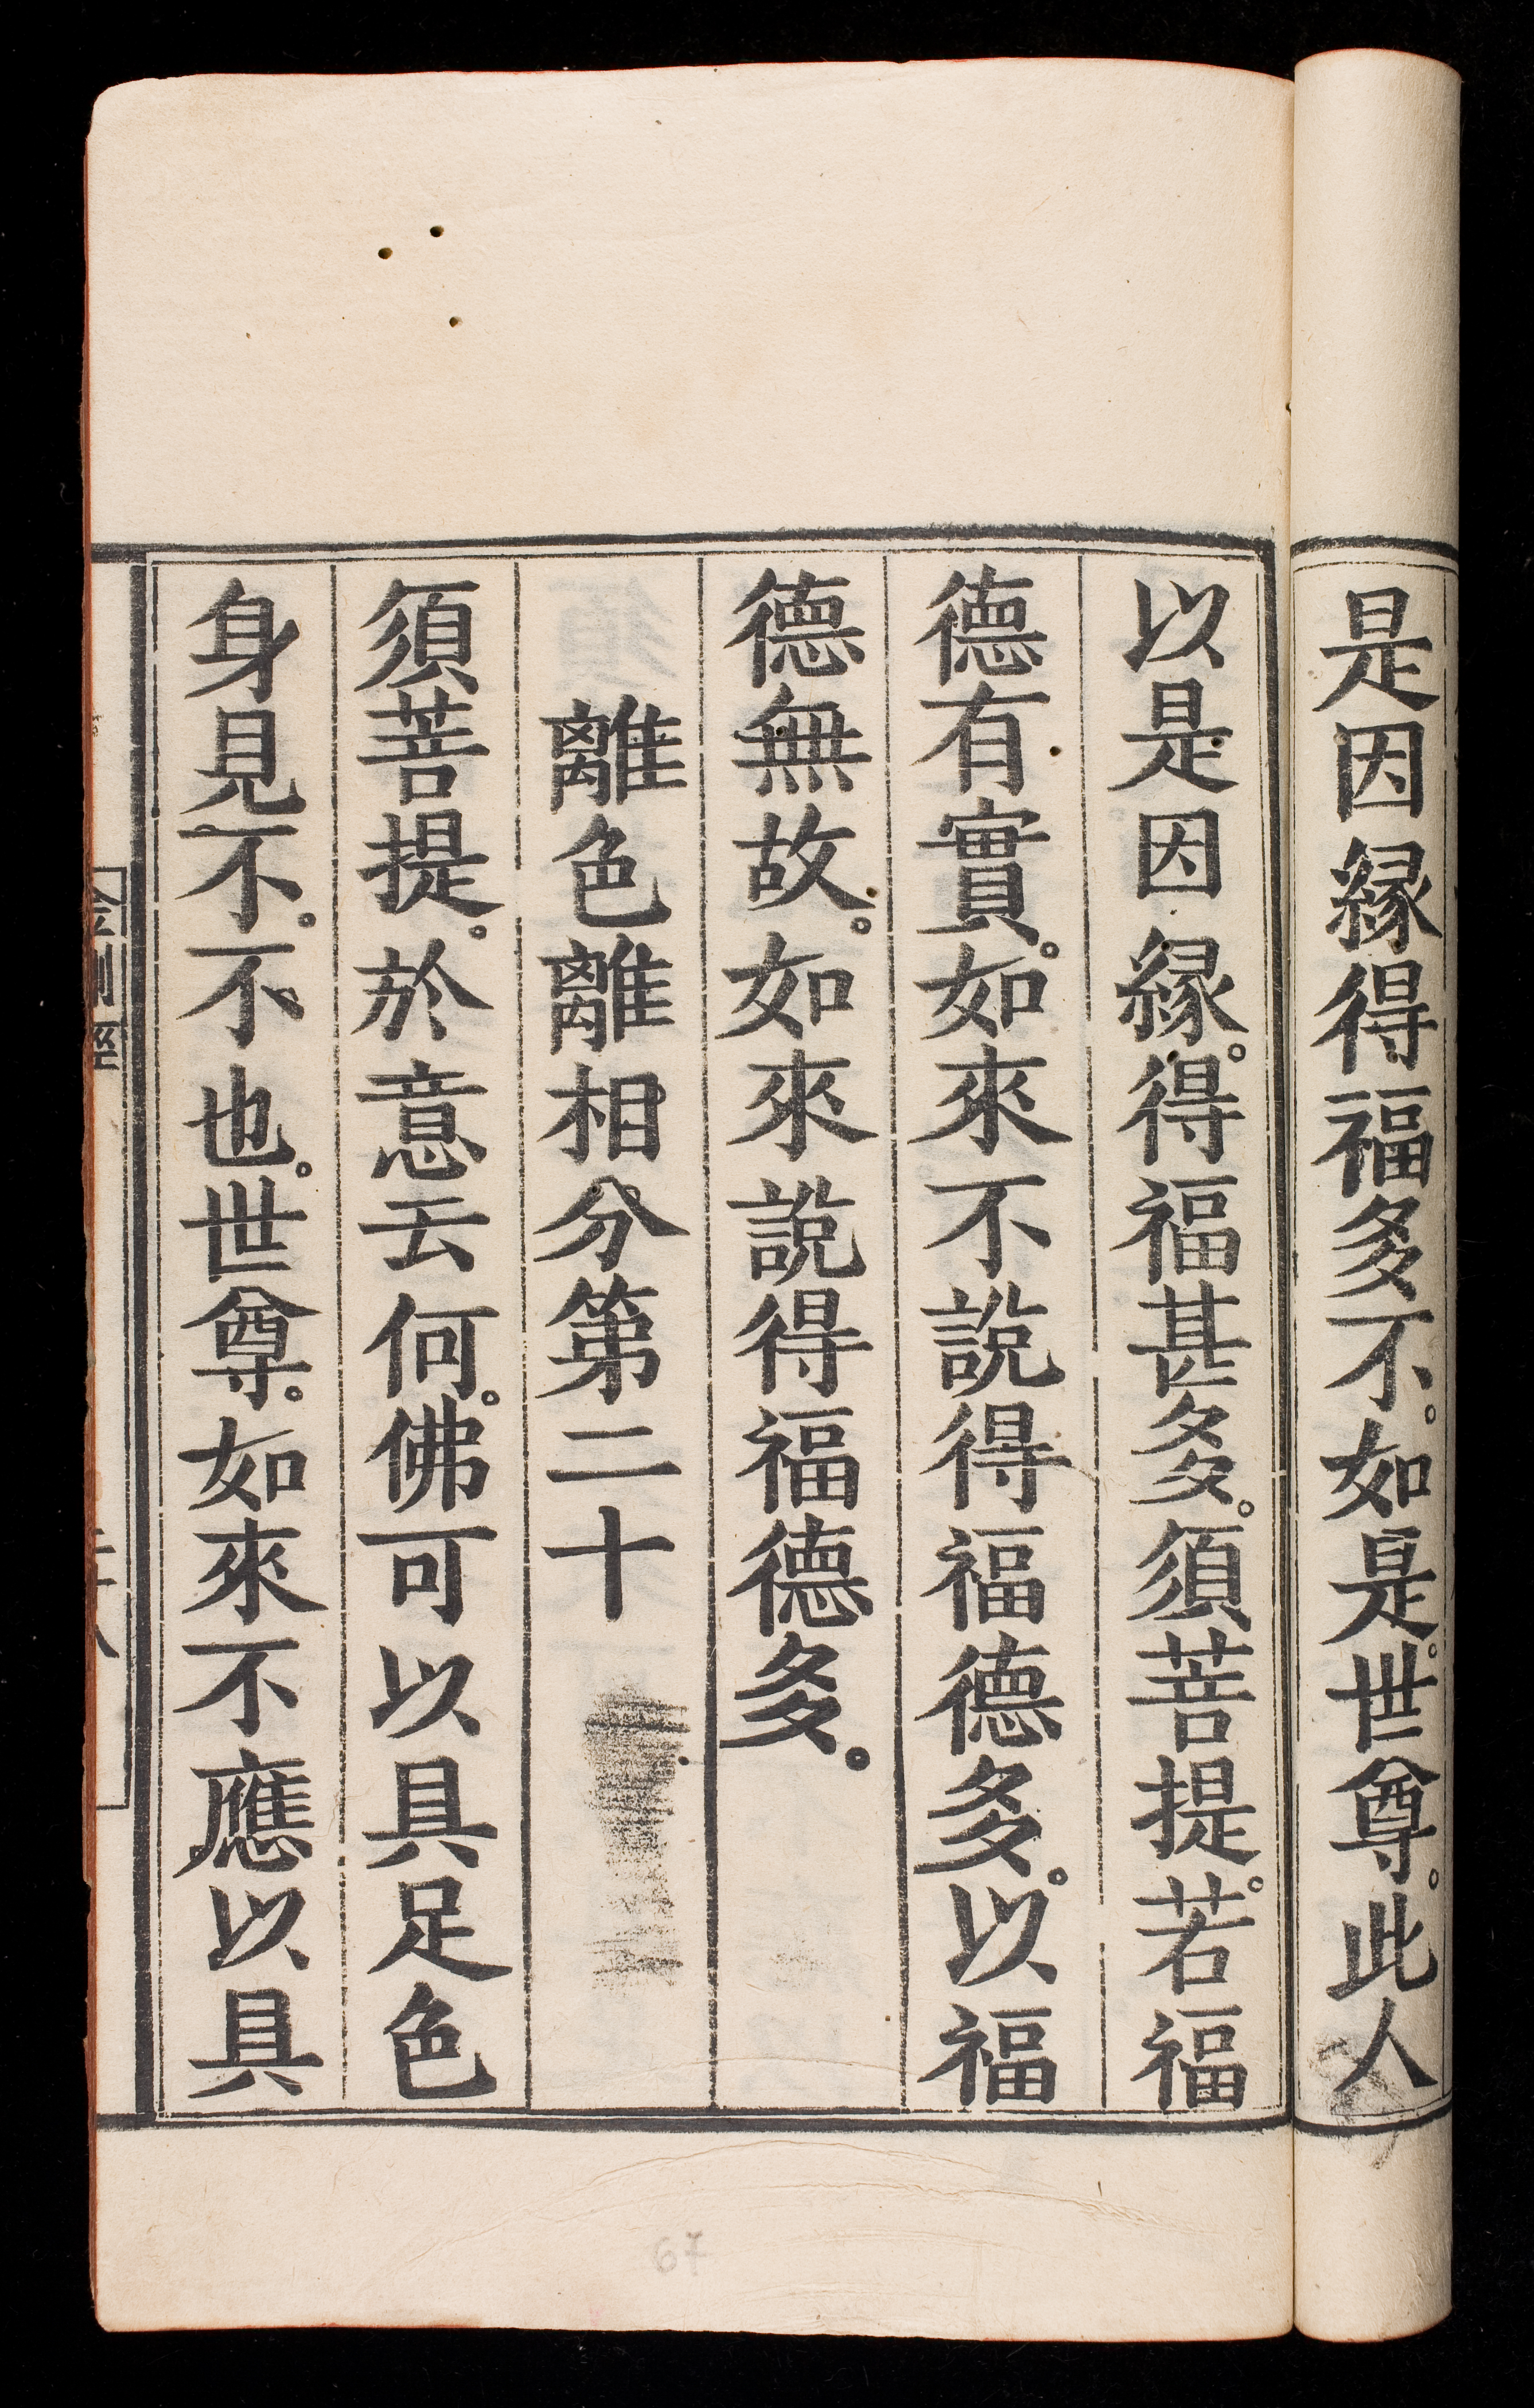 是因緣得福多不。如是。世尊。此人
以是因緣。得福甚多。須菩提。若福
德有實。如來不說得福德多。以福
德無故。如來說得福德多。
離色離相分第二十
須菩提。於意云何。佛可以具足色
身見不。不也。世尊。如來不應以具
67